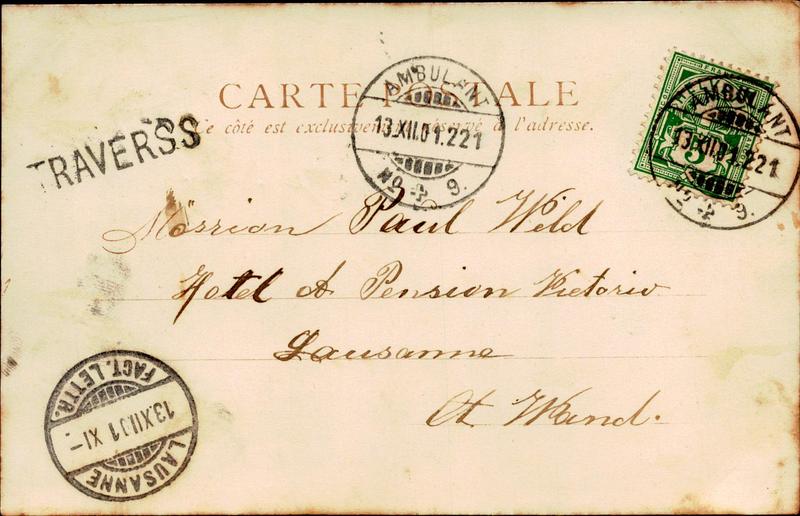 CARTE POSTALE
Ce côté est exclusivement réservé à l'adresse.
TRAVERSS
AMBULANT
13.XII.01.221
No 4 9.
AMBULANT
13.XII.01.221
No 4 9.
5
Mössion Paul Wild
Hotel & Pension Victoria
Lausanne
Ct. Wand.
FACT. LETTR.
13.XII.01 XI-
LAUSANNE